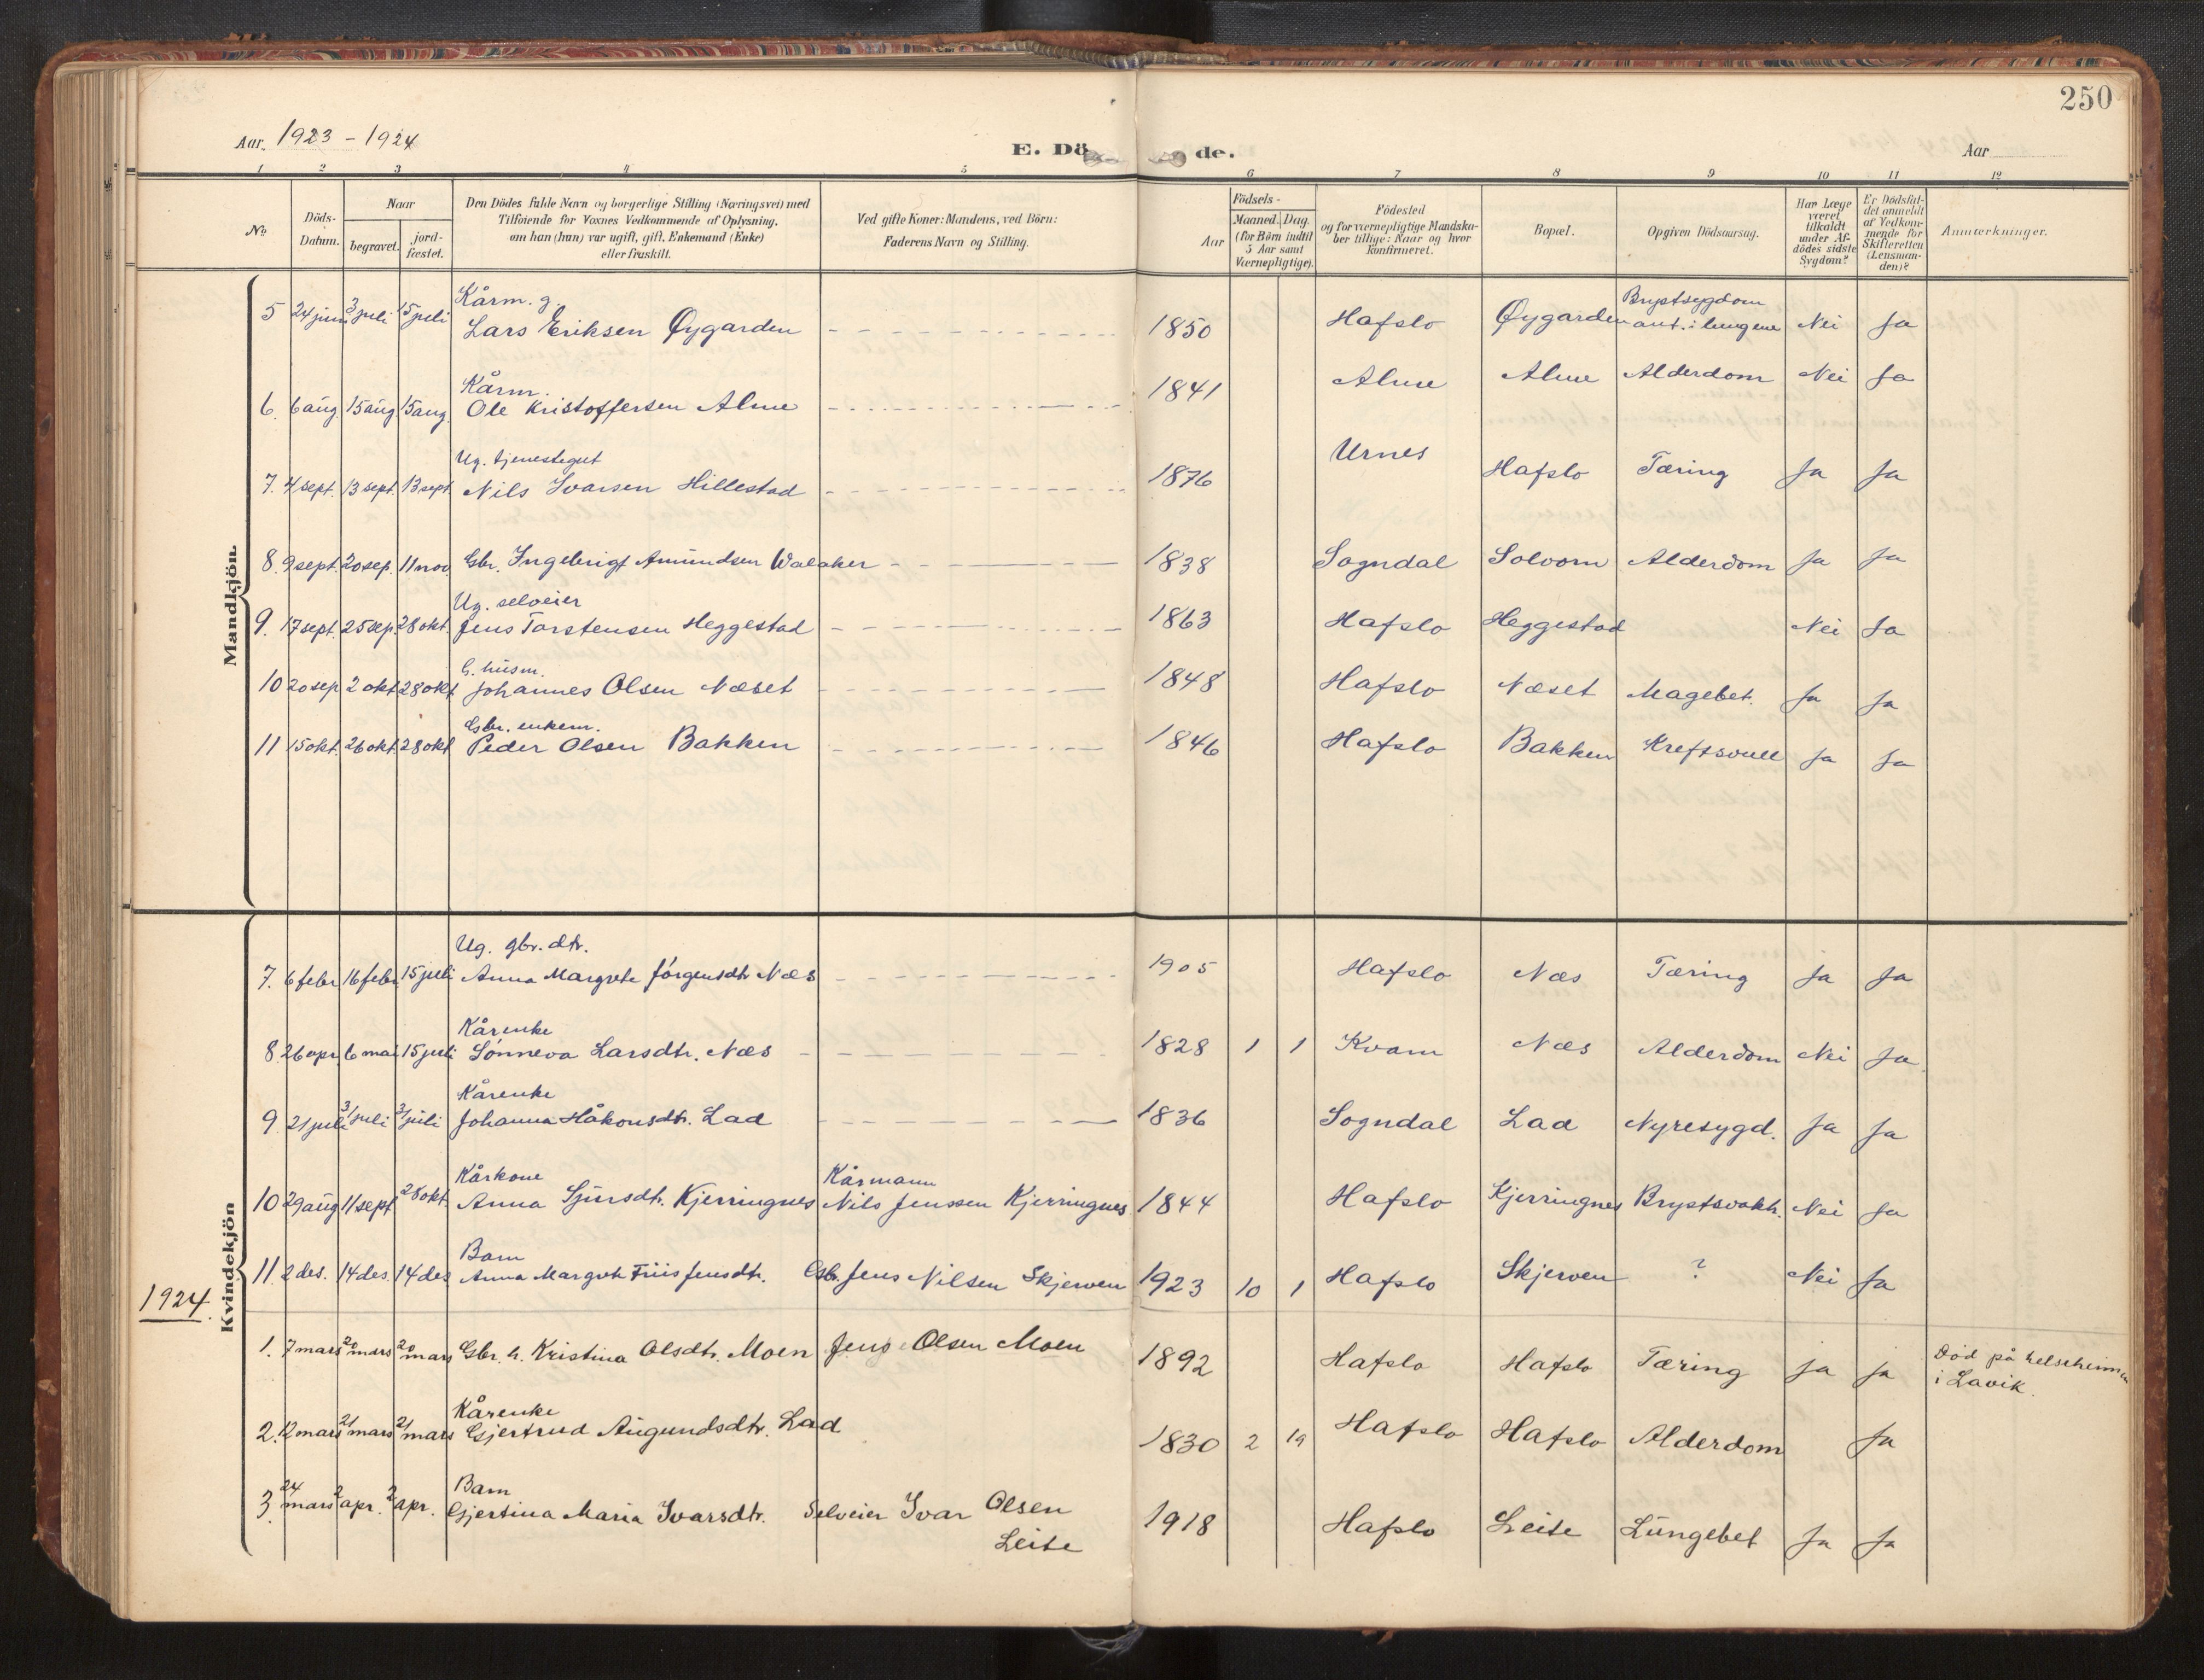 250
Aar. 1923 - 1924
E. Dö de.
Aar
1 2 3 4 5 6 7 8 9 10 11 12
No
Döds-Datum.
Naar
begravet.
jord-fæstet.
Den Dödes fulde Navn og borgerlige Stilling (Næringsvei) med
Tilföiende for Voxnes Vedkommende af Oplysning,
om han (hun) var ugift, gift, Enkemand (Enke)
eller fraskilt.
Ved gifte Koner: Mandens, ved Börn:
Faderens Navn og Stilling.
Födsels-
Aar
Maaned. Dag.
(for Börn indtil
5 Aar samt
Værnepligtige).
Födested
og for værnepligtige Mandska-
ber tillige: Naar og hvor
konfirmeret.
Bopæl.
Opgiven Dödsaarsag.
Har Læge
været
tilkaldt
under Af-
dödes sidste
Sygdom?
Er Dödsfal-
det anmeldt
af Vedkom-
mende for
Skifteretten
(Lensman-
den)?
Anmærkninger.
Mandkjön.
Kårm. g. Brystsygdom
5 24 juni 3 juli 15 juli Lars Eriksen Øygarden 1850 Hafslo Øygarden ant. i lungene Nei Ja
Kårm.
6. 6 aug. 15 aug 15 aug. Ole Kristoffersen Alme 1841 Alme Alme Alderdom Nei Ja
Ug. tjenestegut
7. 4 sept. 13 sept. 13 sept. Nils Ivarsen Hillestad 1876 Urnes Hafslo Tæring Ja Ja
8. 9 sept. 20 sep. 11 nov. Gbr. Ingebrigt Amundsen Walaker 1838 Sogndal Solvorn Alderdom Ja Ja
Ug. selveier
9. 17 sept. 25 sep. 28 okt. Jens Torstensen Heggestad 1863 Hafslo Heggestad Nei Ja
G. husm.
10 20 sep 2 okt 28 okt Johannes Olsen Næset 1848 Hafslo Næset Magebet. Ja Ja
Gbr. enkem.
11 15 okt. 26 okt. 28 okt Peder Olsen Bakken 1846 Hafslo Bakken Kreftsvull Ja Ja
Kvindekjön
Ug. gbr. dtr.
7. 6 febr 16 febr 15 juli Anna Margrete Jörgensdtr Næs 1905 Hafslo Næs Tæring Ja Ja
Kårenke
8. 26 apr. 6 mai 15 juli Sönneva Larsdtr. Næs 1828 1 1 Kvam Næs Alderdom Nei Ja
Kårenke
9. 21 juli 31 juli 31 juli Johanna Håkonsdtr. Lad 1836 Sogndal Lad Nyresygd. Ja Ja
Kårkone Kårmann
10 29 aug 11 sept 28 okt. Anna Sjursdtr. Kjerringnes Nils Jenssen Kjerringnes 1844 Hafslo Kjerringnes Brystsvakh. Nei Ja
Barn
11. 2 des. 14 des. 14 des Anna Margreth Friis Jensdtr. Gbr. Jens Nilsen Skjerven 1923 10 1 Hafslo Skjerven ? Nei Ja
1924.
1. 7 mars 20 mars 20 mars Gbr. h. Kristina Olsdtr. Moen Jens Olsen Moen 1892 Hafslo Hafslo Tæring ja ja Död på helseheimen
i Lavik.
Kårenke
2. 12 mars 21 mars 21 mars Gjertrud Augundsdtr. Lad 1830 2 19 Hafslo Hafslo Alderdom Ja
Barn
3. 24 mars 2 apr. 2 apr. Gjertina Maria Ivarsdtr. Selveier Ivar Olsen
Leite 1918 Hafslo Leite Lungebet Ja Ja